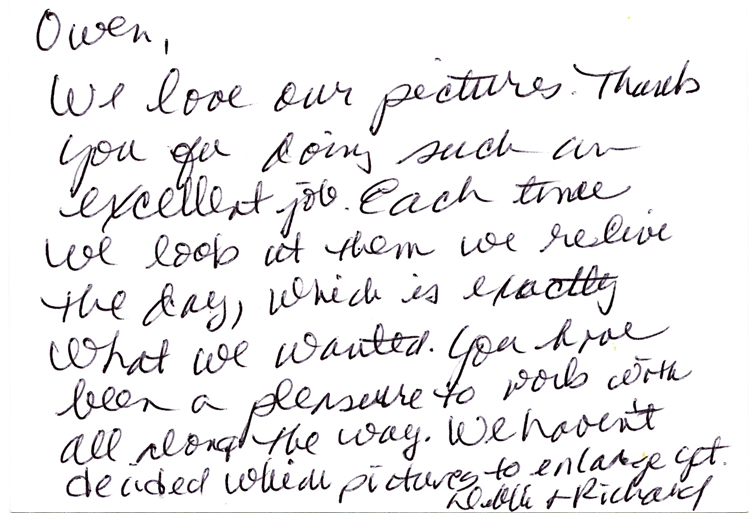 Owen,
We love our pictures. Thank
you for doing such an
excellent job. Each time
we look at them we relive
the day, which is exactly
what we wanted. You have
been a pleasure to work with
all along the way. We haven't
decided which pictures to enlarge yet.
Debbie + Richard